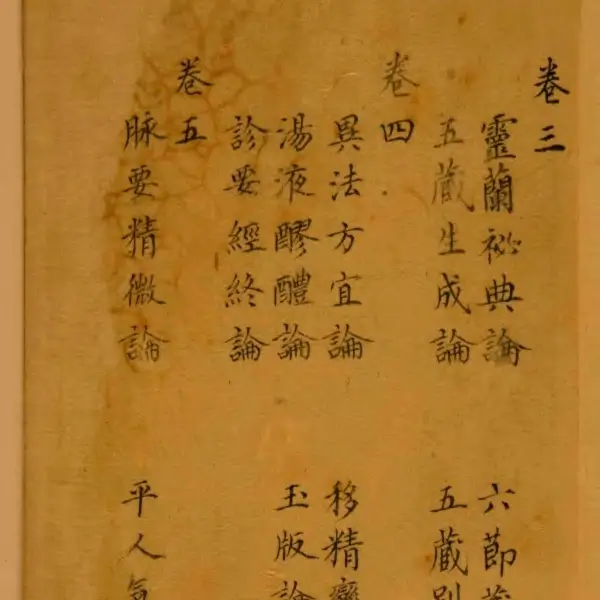 卷三
靈蘭祕典論 六節
五藏生成論 五藏別
卷四
異法方宜論 移精變
湯液醪醴論 玉版論
診要經終論
卷五
脉要精微論 平人氣